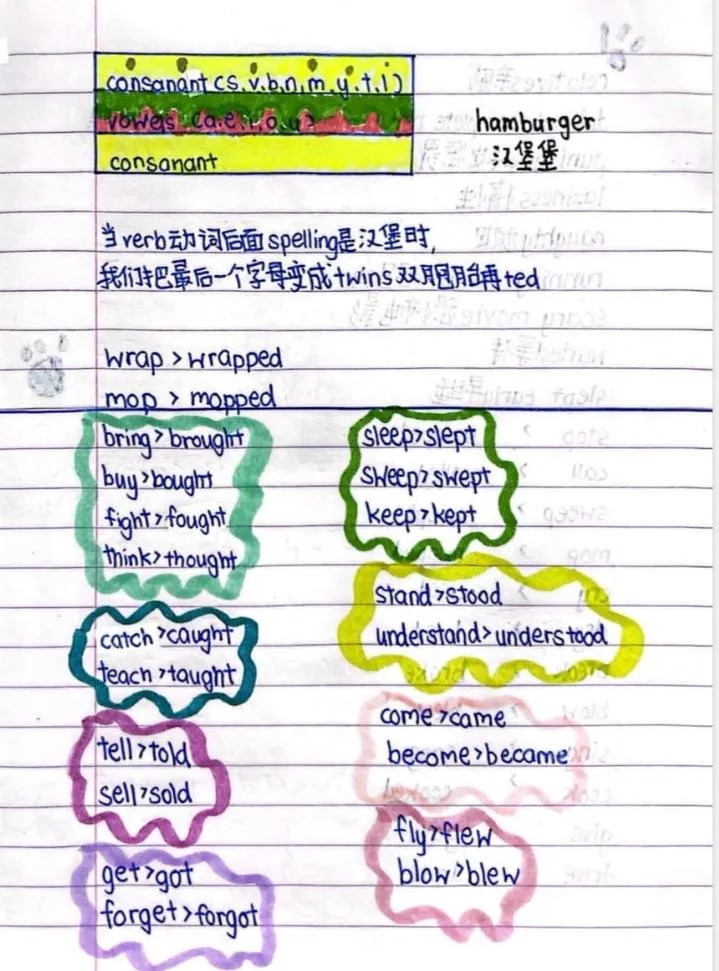 consanant (s, v, b, n, m, y, t, i)
vowels (a, e, i, o, u)
consanant
hamburger
汉堡堡
当verb动词后面spelling是汉堡时,
我们把最后一个字母变成twins双胞胎再ted
wrap > wrapped
mop > mopped
bring > brought
buy > bought
fight > fought
think > thought
catch > caught
teach > taught
tell > told
sell > sold
get > got
forget > forgot
sleep > slept
sweep > swept
keep > kept
stand > stood
understand > understood
come > came
become > became
fly > flew
blow > blew